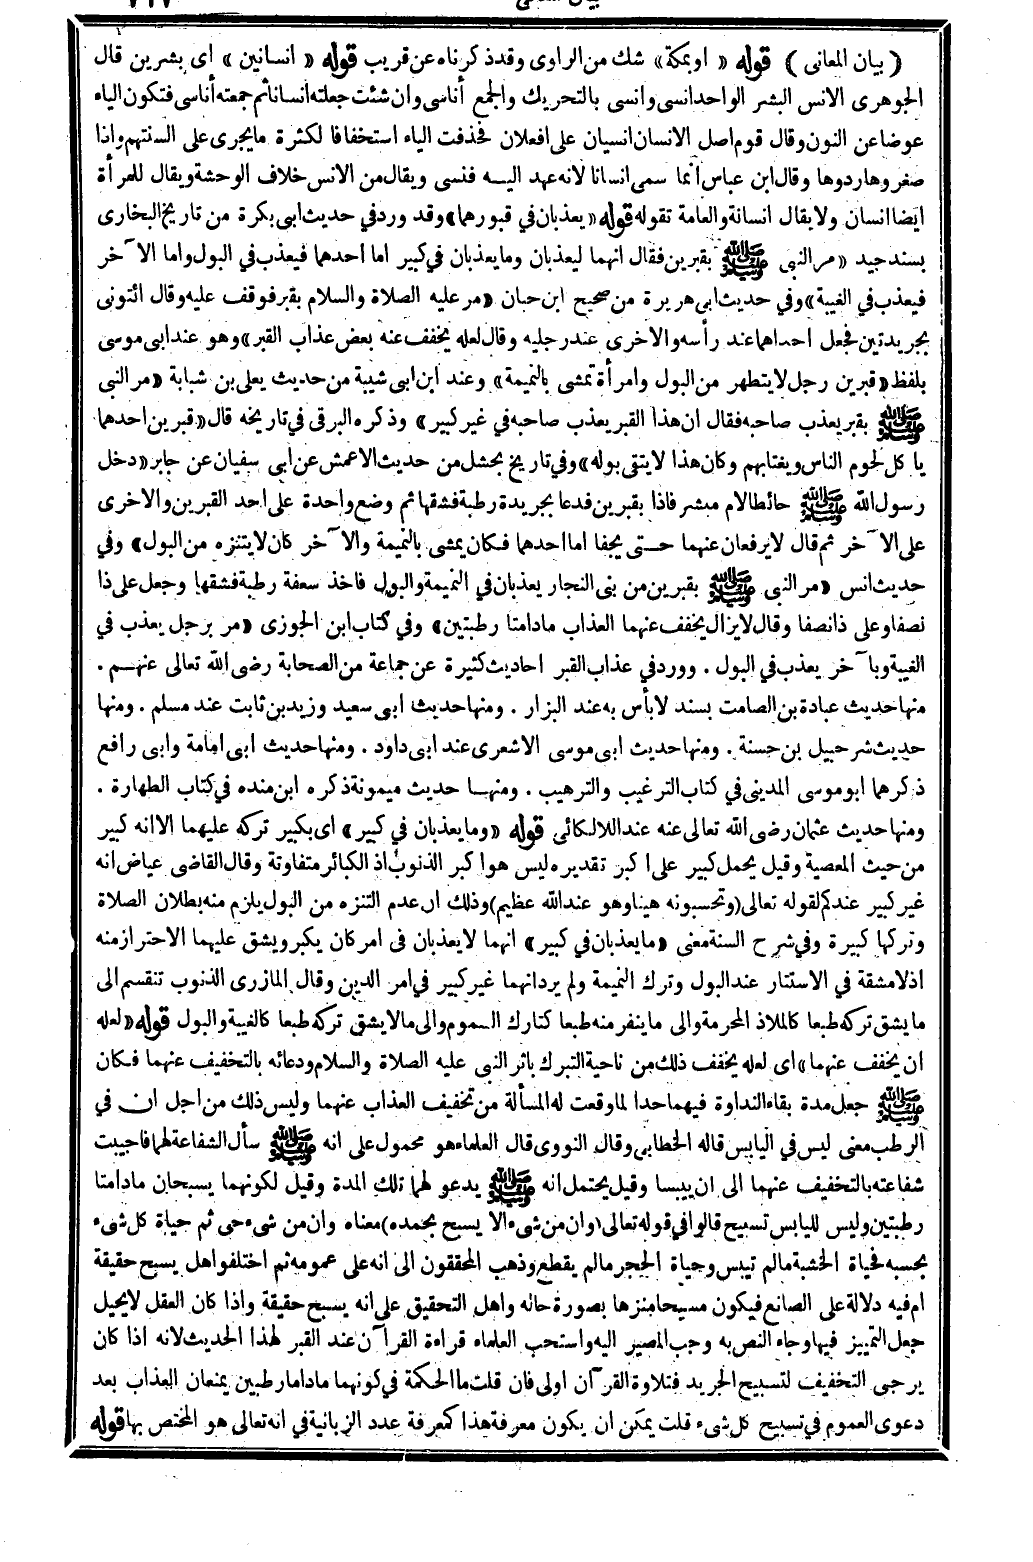 ( بيان المعانى ) قوله « او بمكة» شك من الراوى وقد ذكرناه عن قريب قوله « انسانين » اى بشرين قال
الجوهرى الانس البشر الواحد انسى وانسى بالتحريك والجمع أناسى وان شئت جعلته انسانا ثم جمعته أناسى فتكون الياء
عوضا عن النون وقال قوم اصل الانسان انسيان على افعلان فحذفت الياء استخفافا لكثرة مايجرى على السنتهم واذا
صغروها ردوها وقال ابن عباس أنما سمى انسانا لانه عهد اليه فنسى ويقال من الانس خلاف الوحشة ويقال للمرأة
ايضا انسان ولا يقال انسانة والعامة تقوله قوله « يعذبان في قبورهما» وقد ورد في حديث ابى بكرة من تاريخ البخارى
بسند جيد «مر النبى ﷺ بقبرين فقال انهما ليعذبان وما يعذبان في كبير اما احدهما فيعذب في البول واما الآخر
فيعذب في الغيبة» وفي حديث ابى هريرة من صحيح ابن حبان «مر عليه الصلاة والسلام بقبر فوقف عليه وقال ائتونى
بجريدتين فجعل احداهما عند رأسه والاخرى عند رجليه وقال لعله يخفف عنه بعض عذاب القبر» وهو عند ابى موسى
بلفظ «قبرين رجل لا يتطهر من البول وامرأة تمشى بالنميمة» وعند ابن ابى شيبة من حديث يعلى بن شبابة «مر النبى
ﷺ بقبر يعذب صاحبه فقال ان هذا القبر يعذب صاحبه في غير كبير» وذكره البرقى في تاريخه قال «قبرين احدهما
يا كل لحوم الناس ويغتابهم وكان هذا لا يتقى بوله» وفي تاريخ بحشل من حديث الاعمش عن ابى سفيان عن جابر «دخل
رسول الله ﷺ حائطا لام مبشر فاذا بقبرين فدعا بجريدة رطبة فشقها ثم وضع واحدة على احد القبرين والاخرى
على الآخر ثم قال لا يرفعان عنهما حتى يجفا اما احدهما فكان يمشى بالنميمة والآخر كان لا يتنزه من البول» وفي
حديث انس «مر النبى ﷺ بقبرين من بنى النجار يعذبان في النميمة والبول فاخذ سعفة رطبة فشقها وجعل على ذا
نصفا وعلى ذا نصفا وقال لا يزال يخفف عنهما العذاب مادامتا رطبتين» وفي كتاب ابن الجوزى «مر برجل يعذب في
الغيبة وبآخر يعذب في البول . وورد في عذاب القبر احاديث كثيرة عن جماعة من الصحابة رضى الله تعالى عنهم .
منها حديث عبادة بن الصامت بسند لا بأس به عند البزار . ومنها حديث ابى سعيد وزيد بن ثابت عند مسلم . ومنها
حديث شرحبيل بن حسنة . ومنها حديث ابى موسى الاشعرى عند ابى داود . ومنها حديث ابى امامة وابى رافع
ذكرهما ابو موسى المدينى في كتاب الترغيب والترهيب . ومنها حديث ميمونة ذكره ابن منده في كتاب الطهارة .
ومنها حديث عثمان رضى الله تعالى عنه عند اللالكائى قوله «وما يعذبان في كبير» اى بكبير تركه عليهما الا انه كبير
من حيث المعصية وقيل يحمل كبير على اكبر تقديره ليس هو اكبر الذنوب اذ الكبائر متفاوتة وقال القاضى عياض انه
غير كبير عندكم لقوله تعالى (وتحسبونه هينا وهو عند الله عظيم) وذلك ان عدم التنزه من البول يلزم منه بطلان الصلاة
وتركها كبيرة وفي شرح السنة معنى «ما يعذبان في كبير» انهما لا يعذبان فى امر كان يكبر ويشق عليهما الاحتراز منه
اذ لا مشقة في الاستتار عند البول وترك النميمة ولم يرد انهما غير كبير في امر الدين وقال المازرى الذنوب تنقسم الى
ما يشق تركه طبعا كالملاذ المحرمة والى ما ينفر منه طبعا كتارك السموم والى ما لا يشق تركه طبعا كالغيبة والبول قوله «لعله
ان يخفف عنهما» اى لعله يخفف ذلك من ناحية التبرك باثر النبى عليه الصلاة والسلام ودعائه بالتخفيف عنهما فكان
ﷺ جعل مدة بقاء النداوة فيهما حدا لما وقعت له المسألة من تخفيف العذاب عنهما وليس ذلك من اجل ان في
الرطب معنى ليس في اليابس قاله الخطابى وقال النووى قال العلماء هو محمول على انه ﷺ سأل الشفاعة لهما فاجيبت
شفاعته بالتخفيف عنهما الى ان ييبسا وقيل يحتمل انه ﷺ يدعو لهما تلك المدة وقيل لكونهما يسبحان مادامتا
رطبتين وليس لليابس تسبيح قالوا في قوله تعالى (وان من شىء الا يسبح بحمده) معناه وان من شىء حى ثم حياة كل شىء
بحسبه فحياة الخشبة مالم تيبس وحياة الحجر مالم يقطع وذهب المحققون الى انه على عمومه ثم اختلفوا هل يسبح حقيقة
ام فيه دلالة على الصانع فيكون مسبحا منزها بصورة حاله واهل التحقيق على انه يسبح حقيقة واذا كان العقل لا يحيل
جعل التمييز فيها وجاء النص به وجب المصير اليه واستحب العلماء قراءة القرآن عند القبر لهذا الحديث لانه اذا كان
يرجى التخفيف لتسبيح الجريد فتلاوة القرآن اولى فان قلت ما الحكمة في كونهما ماداما رطبين يمنعان العذاب بعد
دعوى العموم في تسبيح كل شىء قلت يمكن ان يكون معرفة هذا كمعرفة عدد الزبانية في انه تعالى هو المختص بها قوله